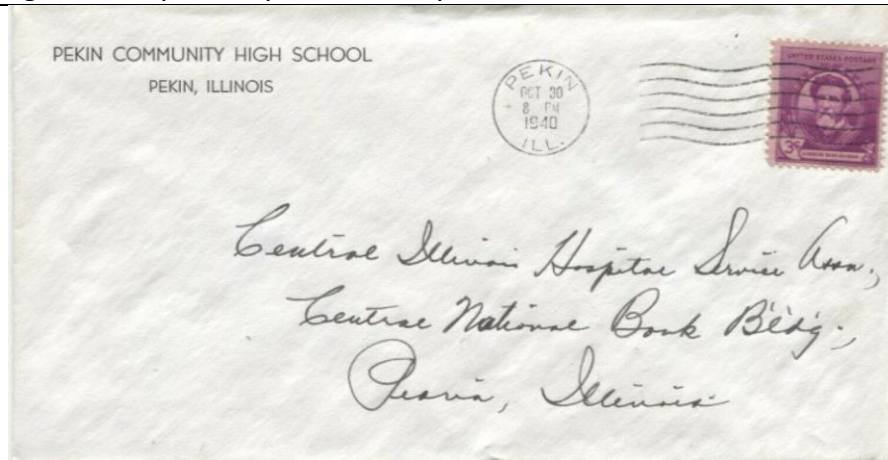 PEKIN COMMUNITY HIGH SCHOOL
PEKIN, ILLINOIS
PEKIN
OCT 30
8 PM
1940
ILL.
UNITED STATES POSTAGE
3¢
Central Illinois Hospital Service Assn.,
Central National Bank Bldg.,
Peoria, Illinois